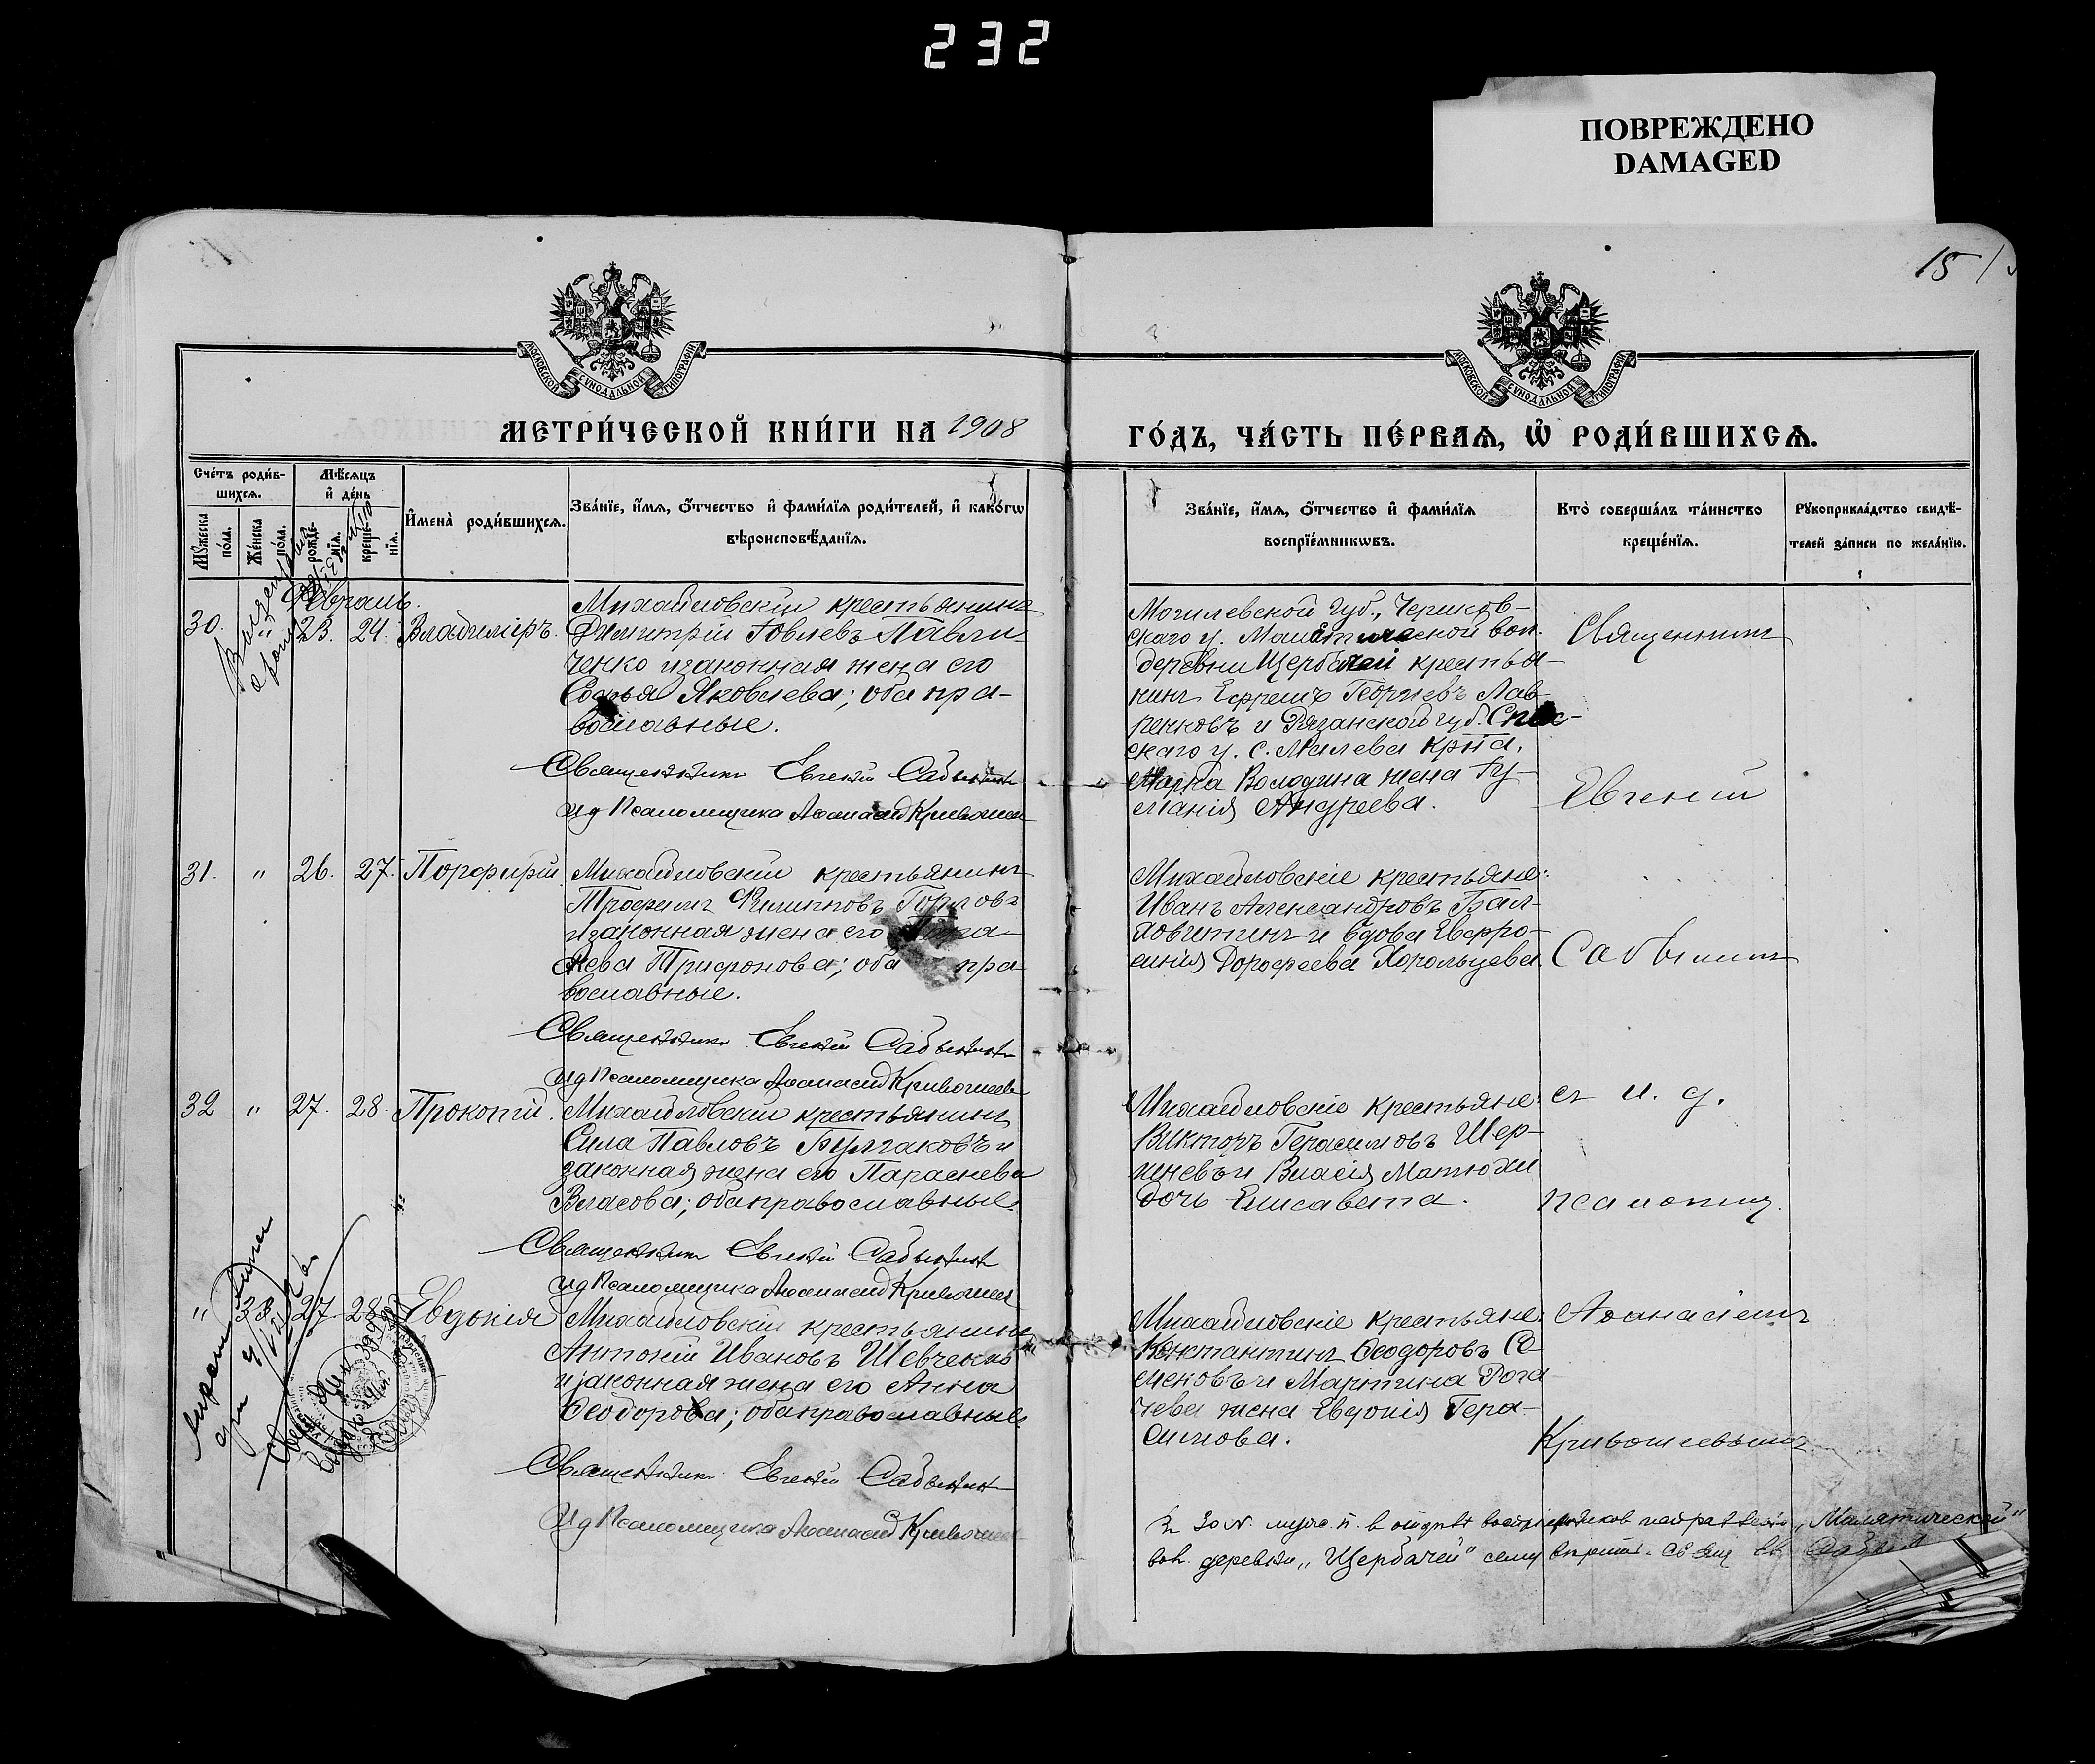 232
ПОВРЕЖДЕНО
DAMAGED
15
МОСКОВСКОЙ СѴНОДАЛЬНОЙ ТИПОГРАФІИ
МОСКОВСКОЙ СѴНОДАЛЬНОЙ ТИПОГРАФІИ
МЕТРИ́ЧЕСКОЙ КНИ́ГИ НА 1908
ГО́ДЪ, ЧА́СТЬ ПЕ́РВАѦ, Ѡ РОДИ́ВШИХСѦ.
Сче́тъ роди́в-
шихсѧ.
Мѣ́сѧцъ
и҆ де́нь
Мꙋжеска
по́ла.
Же́нска
по́ла.
рожде-
нїѧ.
креще-
нїѧ.
И҆мена̀ роди́вшихсѧ.
Зва́нїе, и҆́мѧ, ѻ҆́тчество и҆ фами́лїѧ роди́телей, и҆ како́гѡ
вѣроисповѣ́данїѧ.
Зва́нїе, и҆́мѧ, ѻ҆́тчество и҆ фами́лїѧ
воспрїе́мникѡвъ.
Кто̀ соверша́лъ та́инство
креще́нїѧ.
Рꙋкоприкла́дство свидѣ́-
телей за́писи по жела́нїю.
Февраль.
30. " 23. 24. Владиміръ.
Михайловскій крестьянинъ
Димитрій Іовлевъ Павли
ченко и законная жена его
Софья Яковлева; оба пра-
вославные.
Священникъ Евгеній Сабынинъ
И д Псаломщика Аѳанасій Кривошеев
Могилевской губ., Чериков-
скаго у. вол.
деревни Щербачей крестья-
нинъ Ефремъ Георгіевъ Лав-
ренковъ и Рязанской губ. Спас-
скаго у. с. Жилева кр-на.
Марка Володина жена Гу-
Андреева.
31. " 26. 27. Порфирій.
Михайловскій крестьянинъ
Трофимъ Филипповъ
и законная жена его
Трифонова; оба пра
вославные.
Священникъ Евгеній Сабынинъ
И д Псаломщика Аѳанасій Кривошеев
Михайловскіе крестьяне:
Иванъ Александровъ
и вдова Евфро-
синія Дорофеева Хорольцева.
32 " 27. 28. Прокопій.
Михайловскій крестьянинъ
Сила Павловъ Булгаковъ и
законная жена его Параскева
Власова; оба православные.
Священникъ Евгеній Сабынинъ
И д Псаломщика Аѳанасій Кривошеев
Михайловскіе крестьяне:
Викторъ Герасимовъ Шер-
шневъ и Власія Матюхи
дочь Елисавета.
" 33 27. 28. Евдокія
Михайловскій крестьянинъ
Антоній Ивановъ Шевченко
и законная жена его Анна
Ѳеодорова; оба православные.
Священникъ Евгеній Сабынинъ
И д Псаломщика Аѳанасій Кривошеев
Михайловскіе крестьяне:
Константинъ Ѳеодоровъ Се
меновъ и Мартина Рога
чева жена Евдокія Гера-
симова.
Священникъ
Евгеній
Сабынинъ
съ и. д.
псаломщ.
Аѳанасіемъ
Кривошеевымъ
вол. деревни "Щербачей"